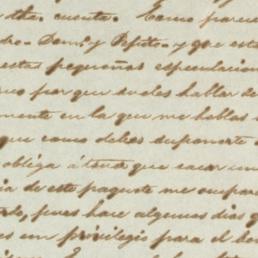 the. cuenta. Como parece
dro. Domi.y Pepito. y que esta
estas pequeñas especulacion
por que sueles hablar de
mente en la que me hablas
que como debes suponerte
obliga á tener que sacar un
ia de este paquete me ocupar
pues hace algunos dias q
es un privilegio para el